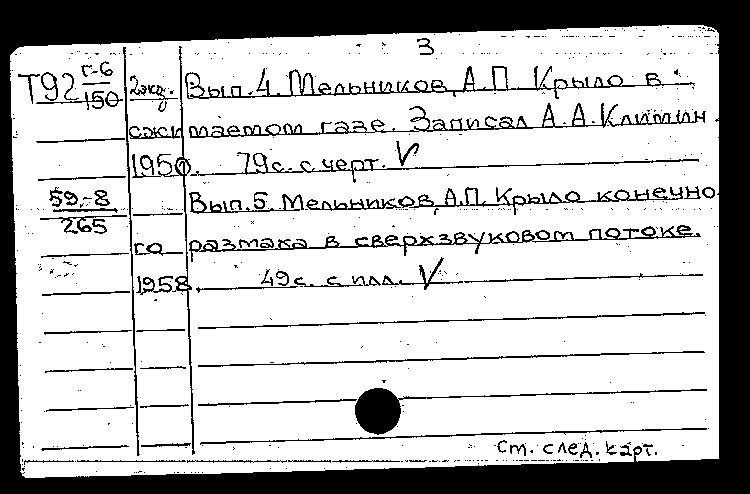 3
Т92 г-6/150 2экз. Вып.4. Мельников, А.П. Крыло в
сжимаемом газе. Записал А.А. Климин.
1950. 79с. с черт. V
59-8/265 Вып.5. Мельников, А.П. Крыло конечно
го размаха в сверхзвуковом потоке.
1958. 49с. с илл. V
См. след. карт.